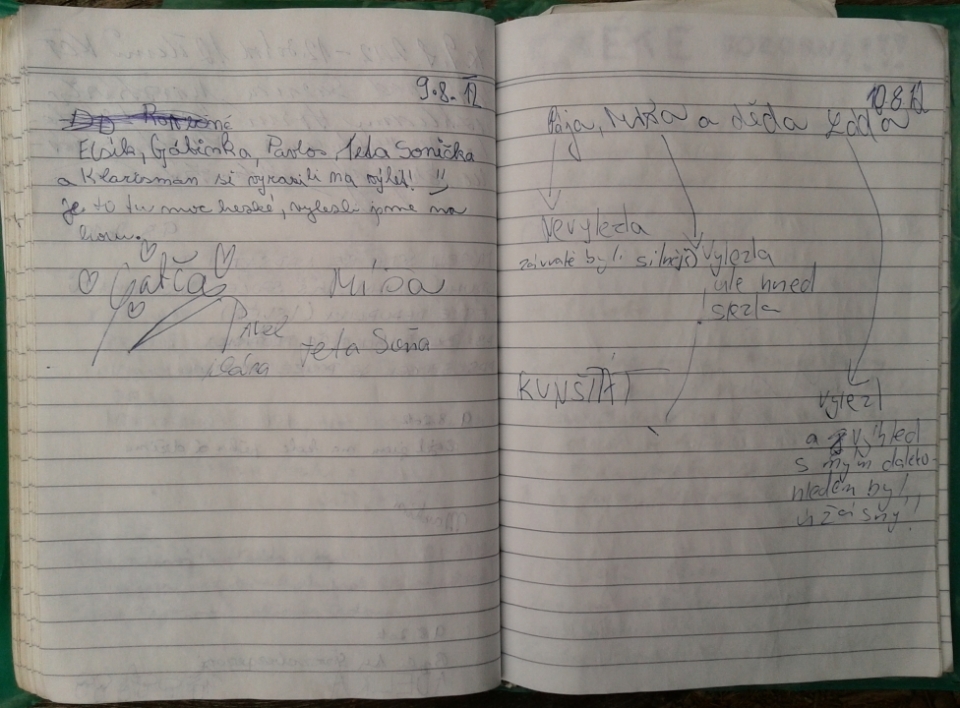 9.8.12
Elsík, Gábinka, Pavlos, Teta Sonička
a Klartsman si vyrazili na výlet!
je to tu moc hezké, vylezli jsme na
horu.
Gatča
Míša
Pavel
Teta Soňa
10.8.12
Pája, Míša a děda Zdďa
Nevylezla
závratě byli silnější
vylezla
ale hned
slezla
KUNŠTÁT
vylezl
a výhled
s mým dalekto
hledem byl
úžasný!!